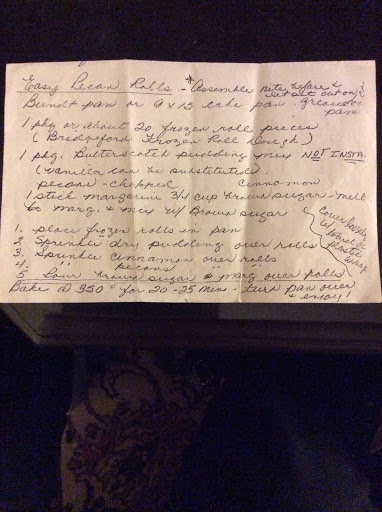 Easy Pecan Rolls - Assemble nite before & let set out on
Bundt pan or 9 x 13 cake pan - greased c pam
1 pkg or about 20 frozen roll pieces
(Bridgeford Frozen Roll Dough)
1 pkg. Butterscotch pudding mix NOT INSTA.
(vanilla can be substituted)
pecans - chopped Cinnamon
1 stick margarine 3/4 cup brown sugar - melt
marg. & mix w/ Brown sugar
1. place frozen rolls in pan
2 Sprinkle dry pudding over rolls
3. Sprinkle cinnamon over rolls
4. " pecans " "
5 Pour brown sugar & marg over rolls
Cover w/ plastic wrap
Bake at 350° for 20-25 min - turn pan over
& enjoy!